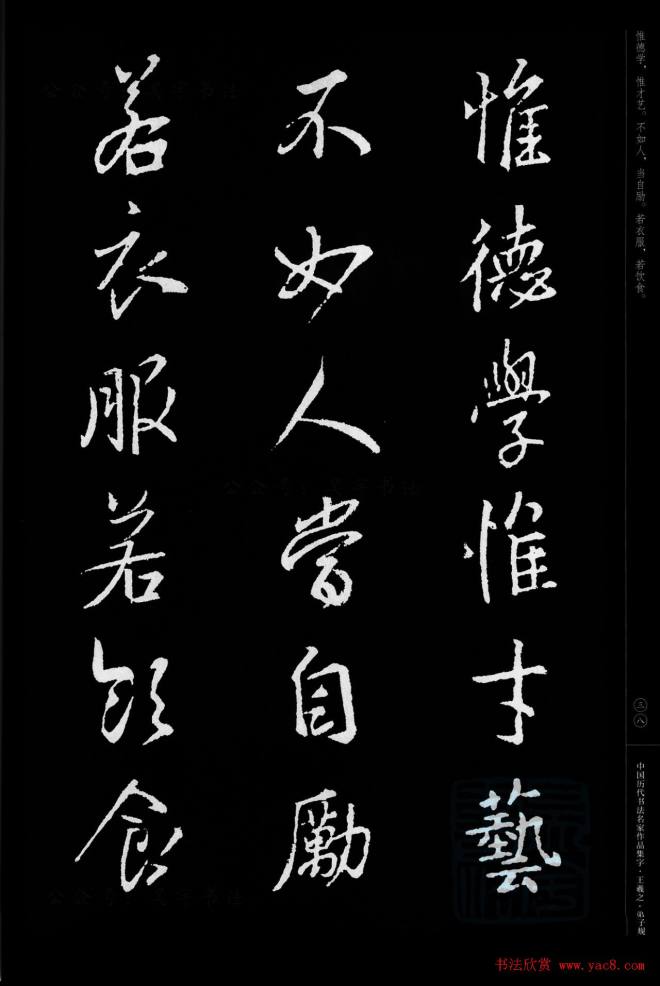 惟德学，惟才艺。不如人，当自励。若衣服，若饮食。
惟德學惟才藝
不如人當自勵
若衣服若飲食
三八
中国历代书法名家作品集字·王羲之·弟子规
书法欣赏 www.yac8.com